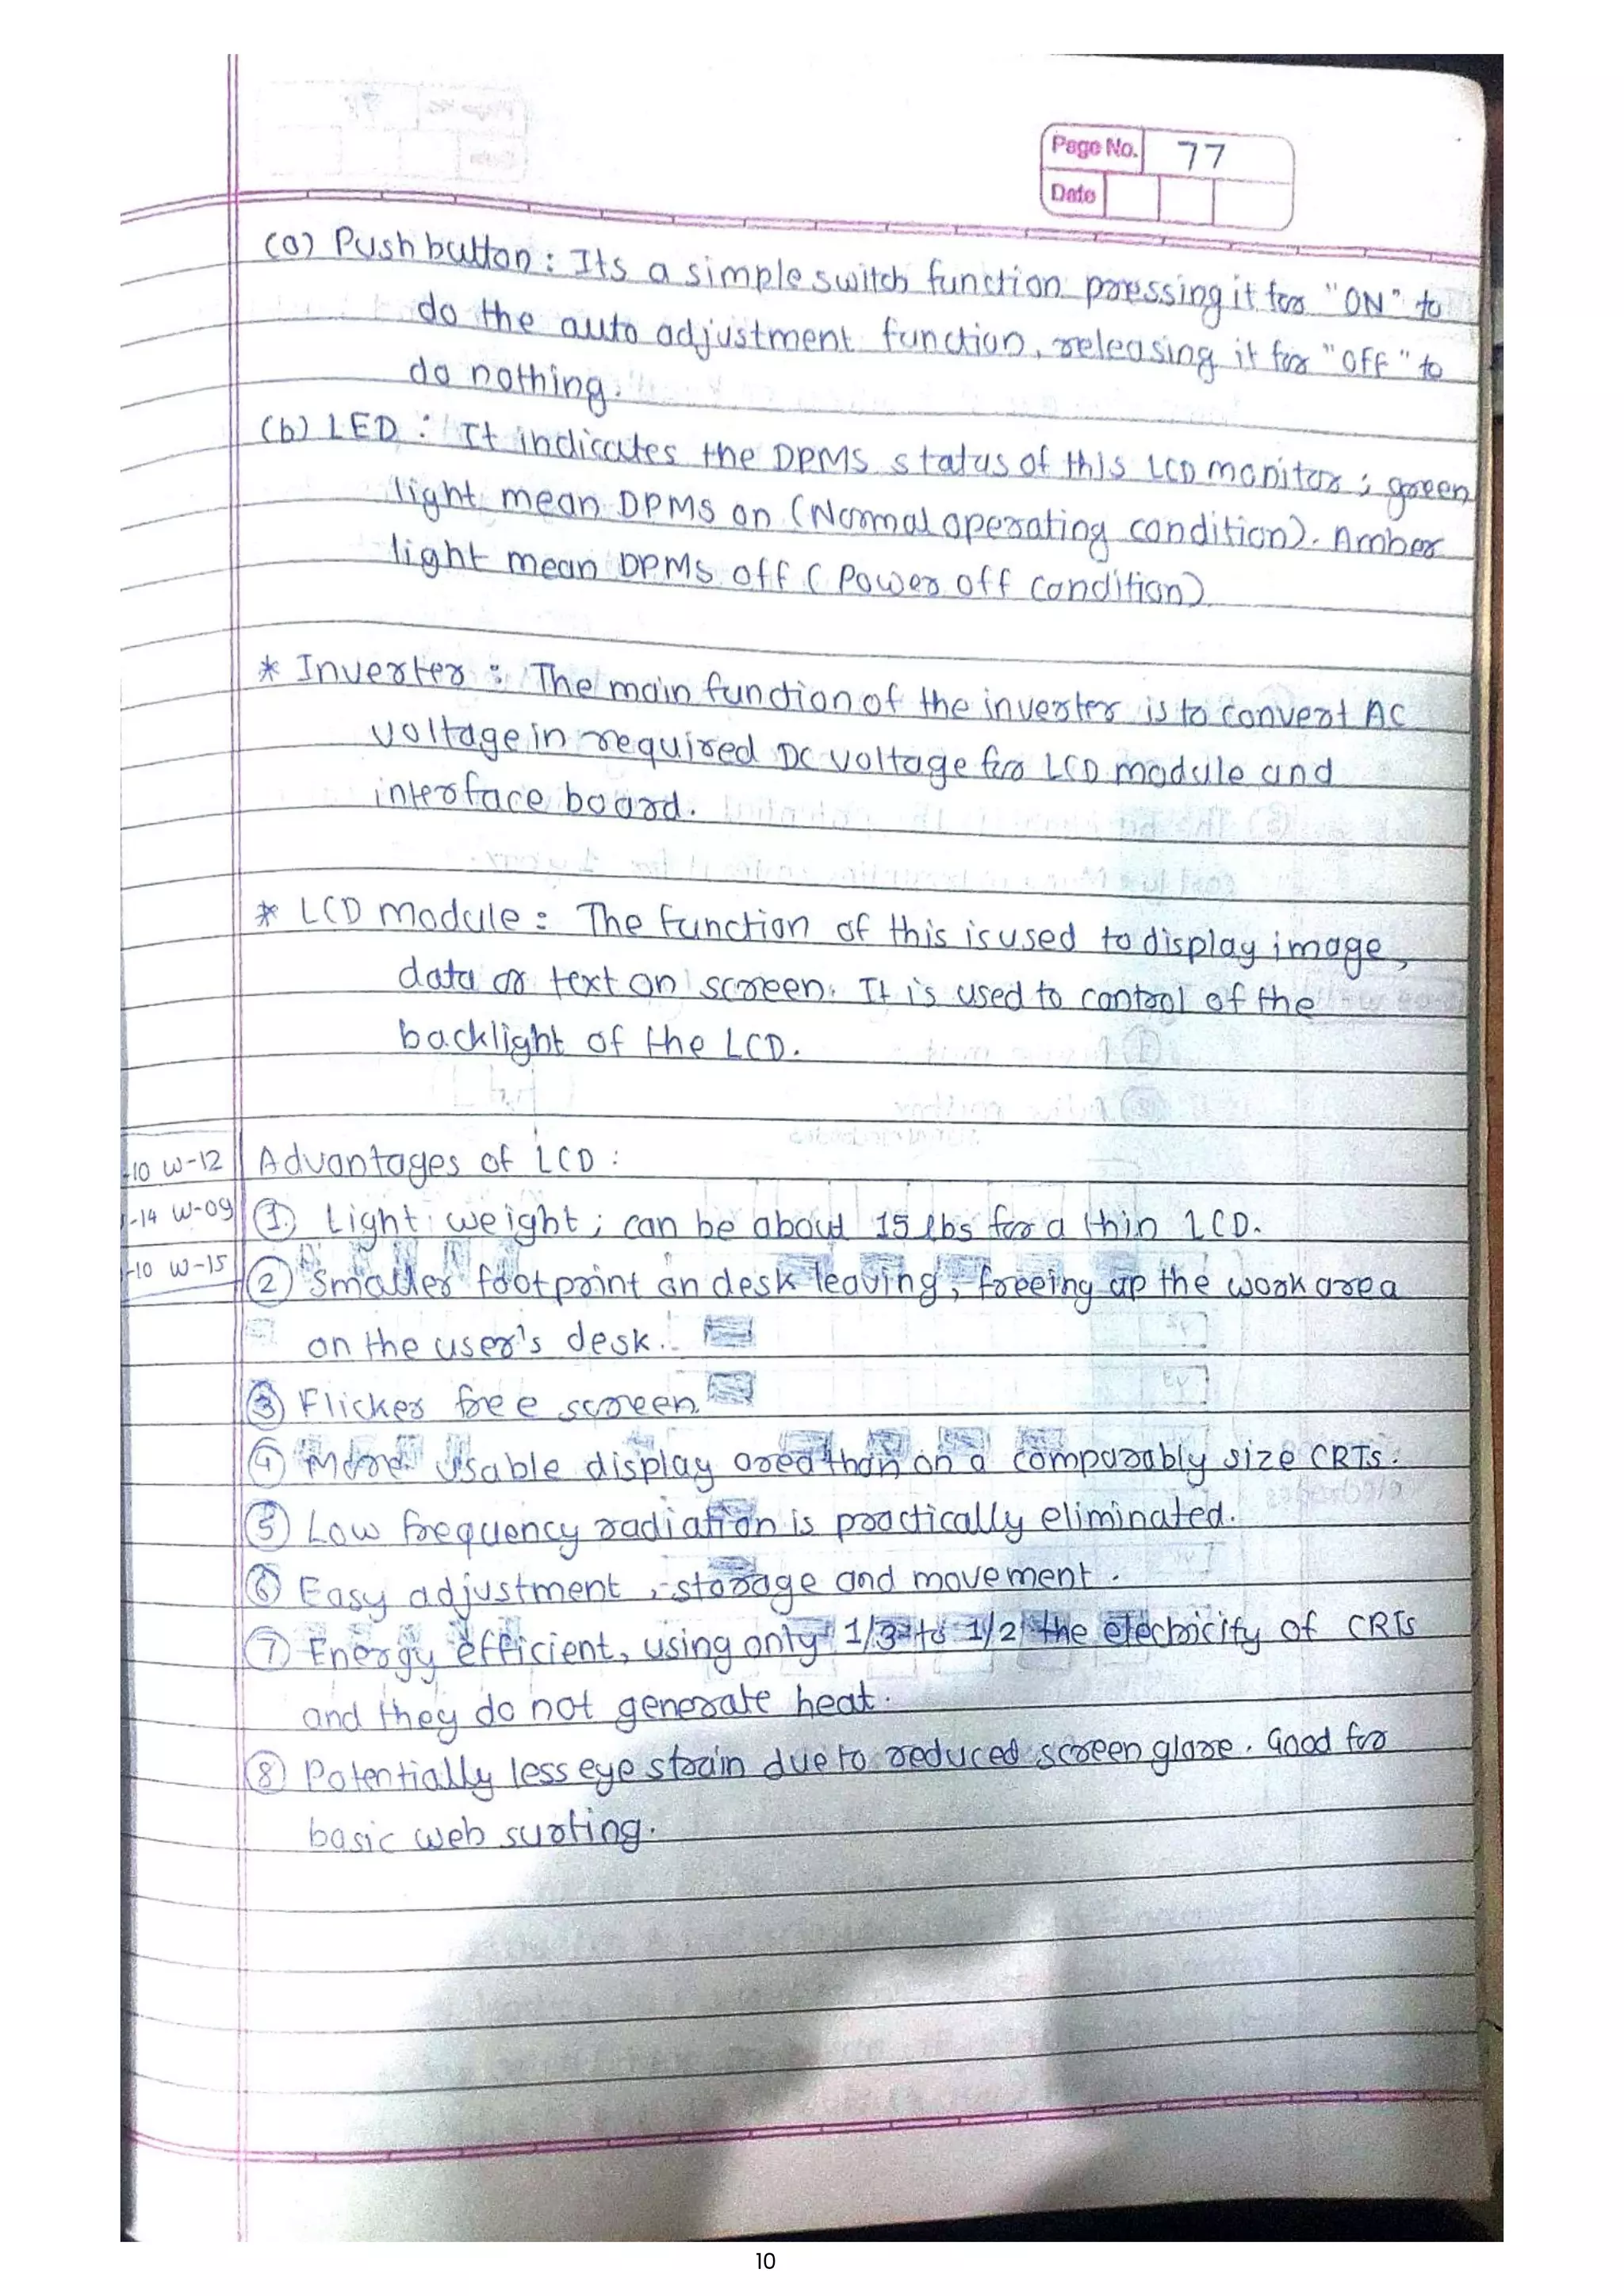 Page No. 77
Date
(a) Push button : Its a simple switch function pressing it for "ON" to
do the auto adjustment function, releasing it for "OFF" to
do nothing.
(b) LED : It indicates the DPMS status of this LCD monitor ; green
light mean DPMS on (Normal operating condition). Amber
light mean DPMS off ( Power off condition)
* Inverter : The main function of the inverter is to convert AC
voltage in required DC voltage for LCD module and
interface board.
* LCD Module : The function of this is used to display image,
data or text on screen. It is used to control of the
backlight of the LCD.
-10 W-12
Advantages of LCD :
-14 W-09
① Light weight ; can be about 15 lbs for a thin LCD.
-10 W-15
② Smaller footprint on desk leaving, freeing up the work area
on the user's desk.
③ Flicker free screen.
④ More usable display area than on a comparably size CRTs.
⑤ Low frequency radiation is practically eliminated.
⑥ Easy adjustment, storage and movement.
⑦ Energy efficient, using only 1/3 to 1/2 the electricity of CRTs
and they do not generate heat.
⑧ Potentially less eye strain due to reduced screen glare. Good for
basic web surfing.
10